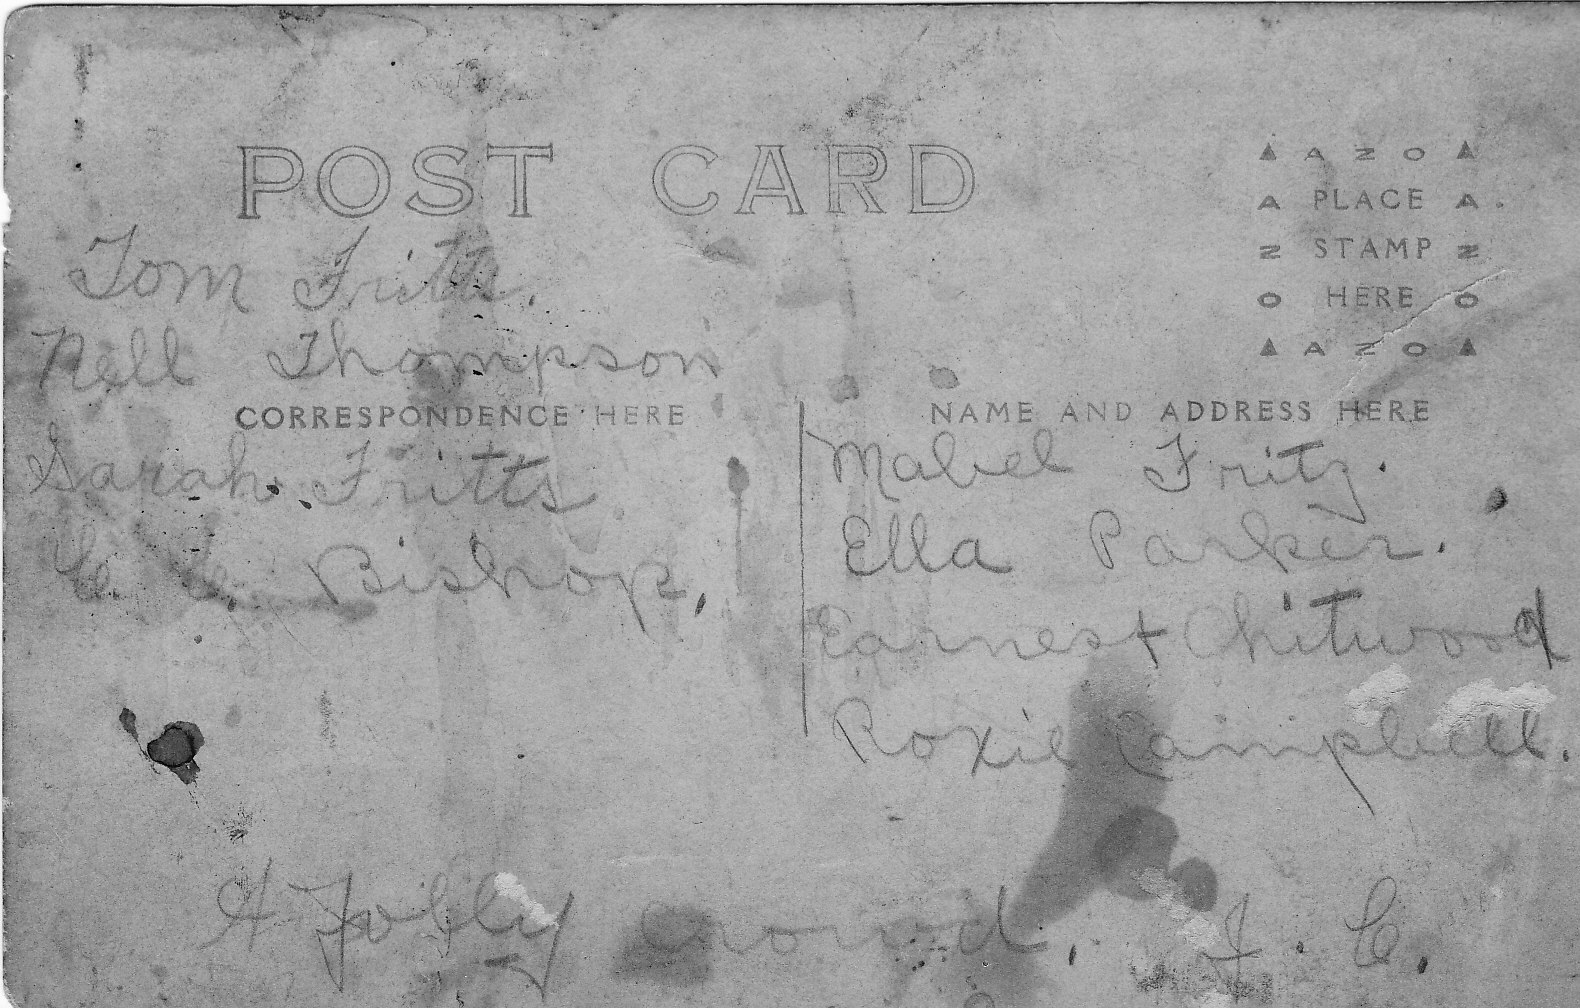 POST CARD
▲ A Z O ▲
A PLACE A
Z STAMP Z
O HERE O
▲ A Z O ▲
Tom Fritts.
Nell Thompson
CORRESPONDENCE HERE
Sarah Fritts
C. C. Bishop,
NAME AND ADDRESS HERE
Mabel Fritz.
Ella Parker.
Earnest Chitwood
Roxie Campbell.
A Jolly crowd, J. C.